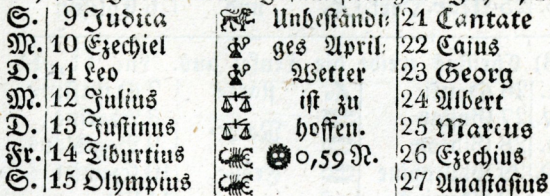 S. 9 Judica Unbeständi- 21 Cantate
M. 10 Ezechiel ges April- 22 Cajus
D. 11 Leo Wetter 23 Georg
M. 12 Julius ist zu 24 Albert
D. 13 Justinus hoffen. 25 Marcus
Fr. 14 Tiburtius 0,59 N. 26 Ezechius
S. 15 Olympius 27 Anastasius